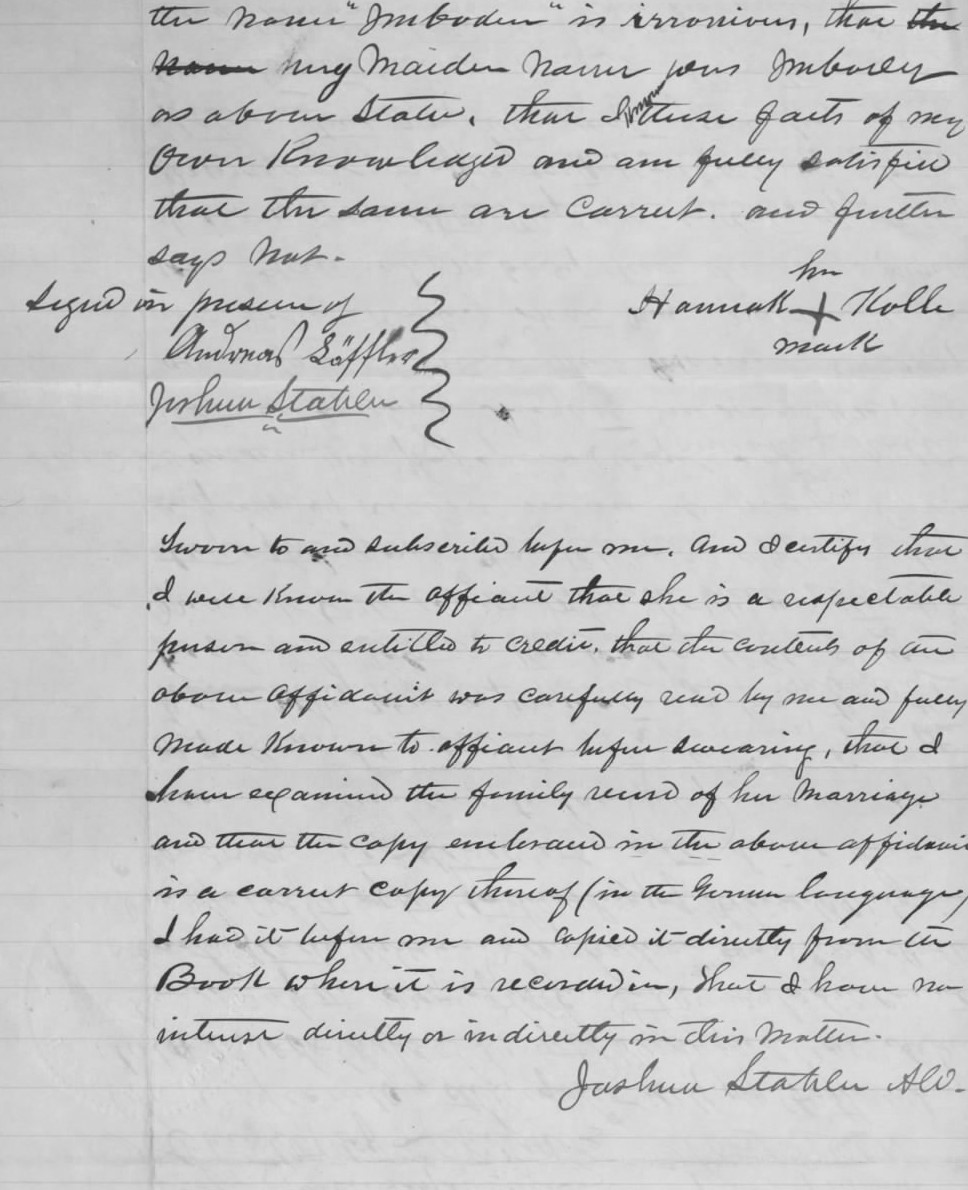 the name "Imboden" is irronious, that the
name my Maiden Name was Imbody
as above State, that I know these facts of my
Own Knowledge and am fully satisfied
that the same are Correct. and further
says not.
her
Signed in presence of
Hannah + Kolle
mark
Andreas Löffler
Joshua Stahler
Sworn to and subscribed before me, and I certify that
I well Know the affiant that she is a respectable
person and entitled to credit, that the contents of the
above affidavit was carefully read by me and fully
made Known to affiant before swearing, that I
have examined the family record of her Marriage
and that the copy embraced in the above affidavit
is a correct copy thereof (in the German language)
I had it before me and copied it directly from the
Book where it is recorded in, that I have no
interest directly or indirectly in this Matter.
Joshua Stahler